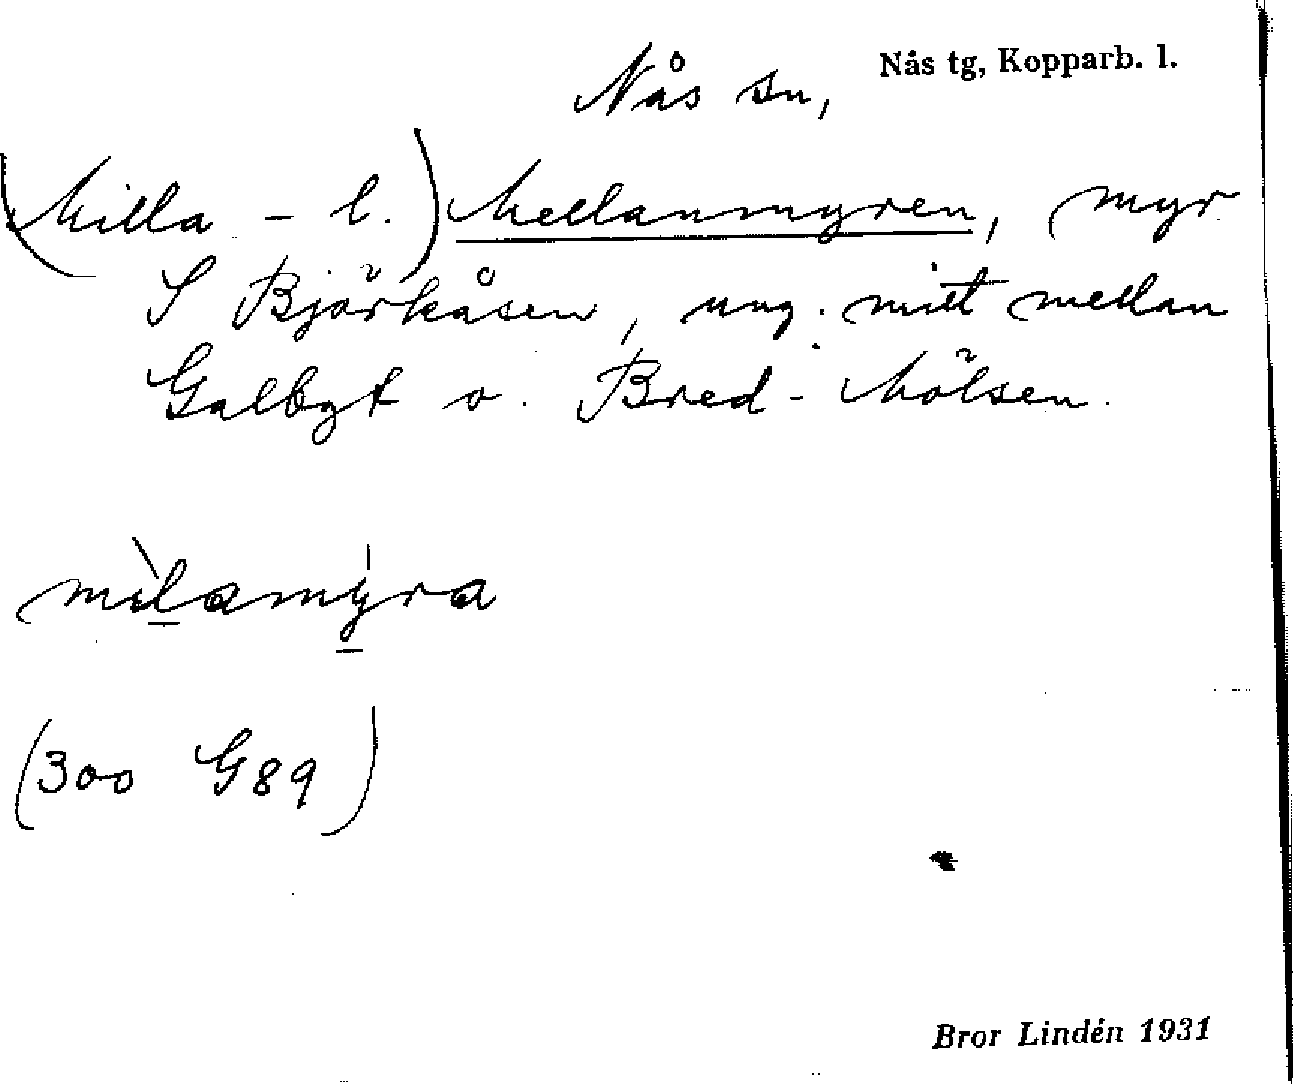 Nås tg, Kopparb. l.
Nås sn,
(Milla - l.) Mellanmyren, myr
S Björkåsen, ung. mitt mellan
Galbgt o. Bred-Mölsen.
milamyra
(300 G89)
Bror Lindén 1931